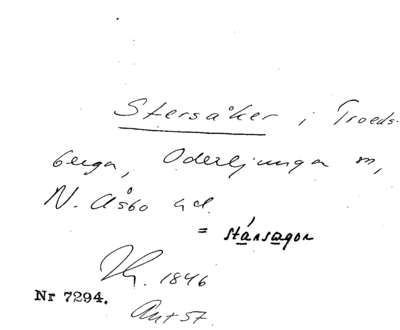 Stersåker i Troeds-
berga, Oderljunga sn,
N. Åsbo hd.
= stársagor
1846
Nr 7294.
Ant 57.